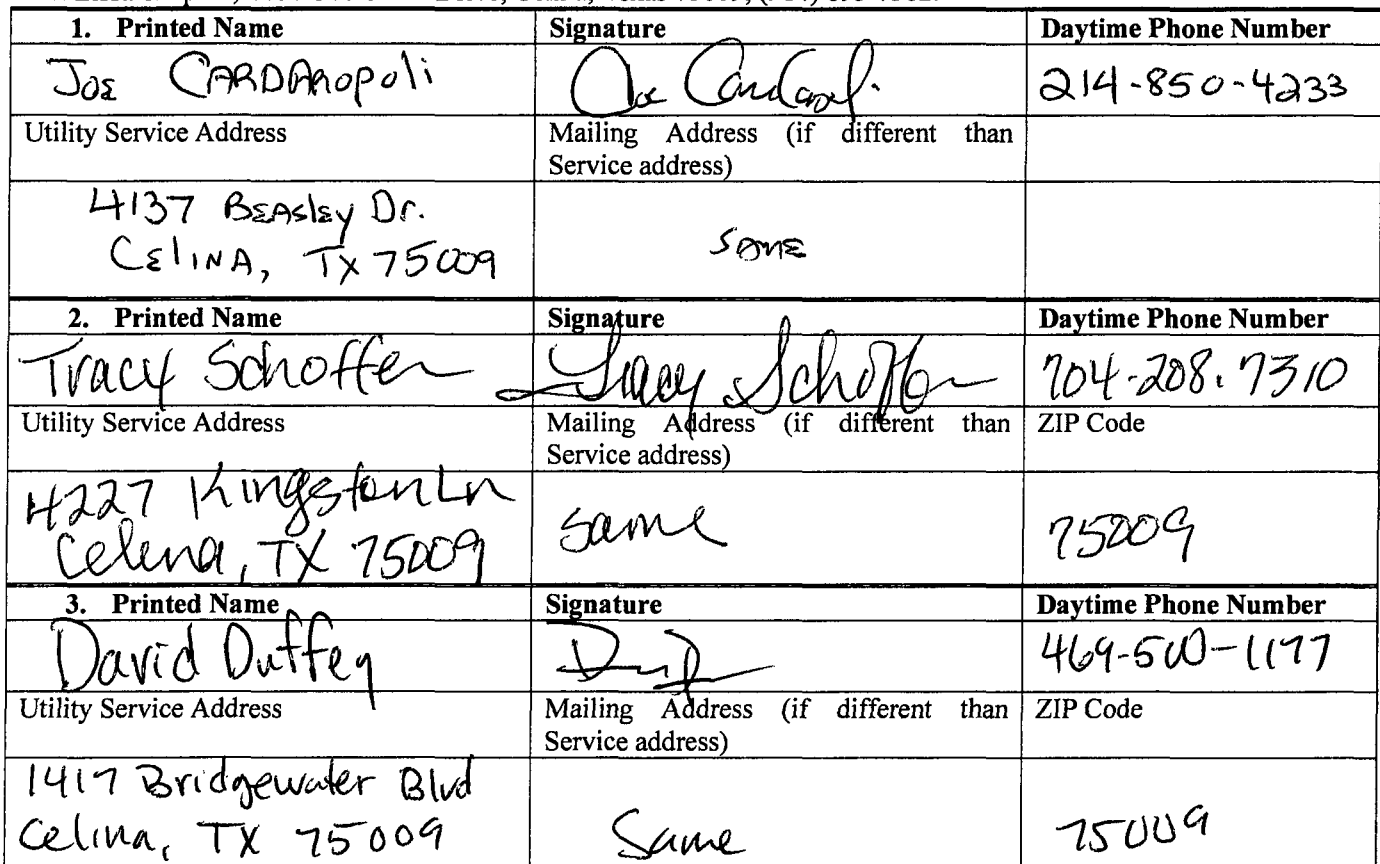 1. Printed Name Signature Daytime Phone Number
Joe CARDARopoli Joe Cardarop. 214-850-4233
Utility Service Address Mailing Address (if different than
Service address)
4137 BEASley Dr.
CElINA, TX 75009 SAME
2. Printed Name Signature Daytime Phone Number
Tracy Schoffer Tracy Schoffer 704-208.7310
Utility Service Address Mailing Address (if different than ZIP Code
Service address)
4227 Kingston Ln
Celina, TX 75009 same 75009
3. Printed Name Signature Daytime Phone Number
David Duffey 469-500-1177
Utility Service Address Mailing Address (if different than ZIP Code
Service address)
1417 Bridgewater Blvd
Celina, TX 75009 Same 75009